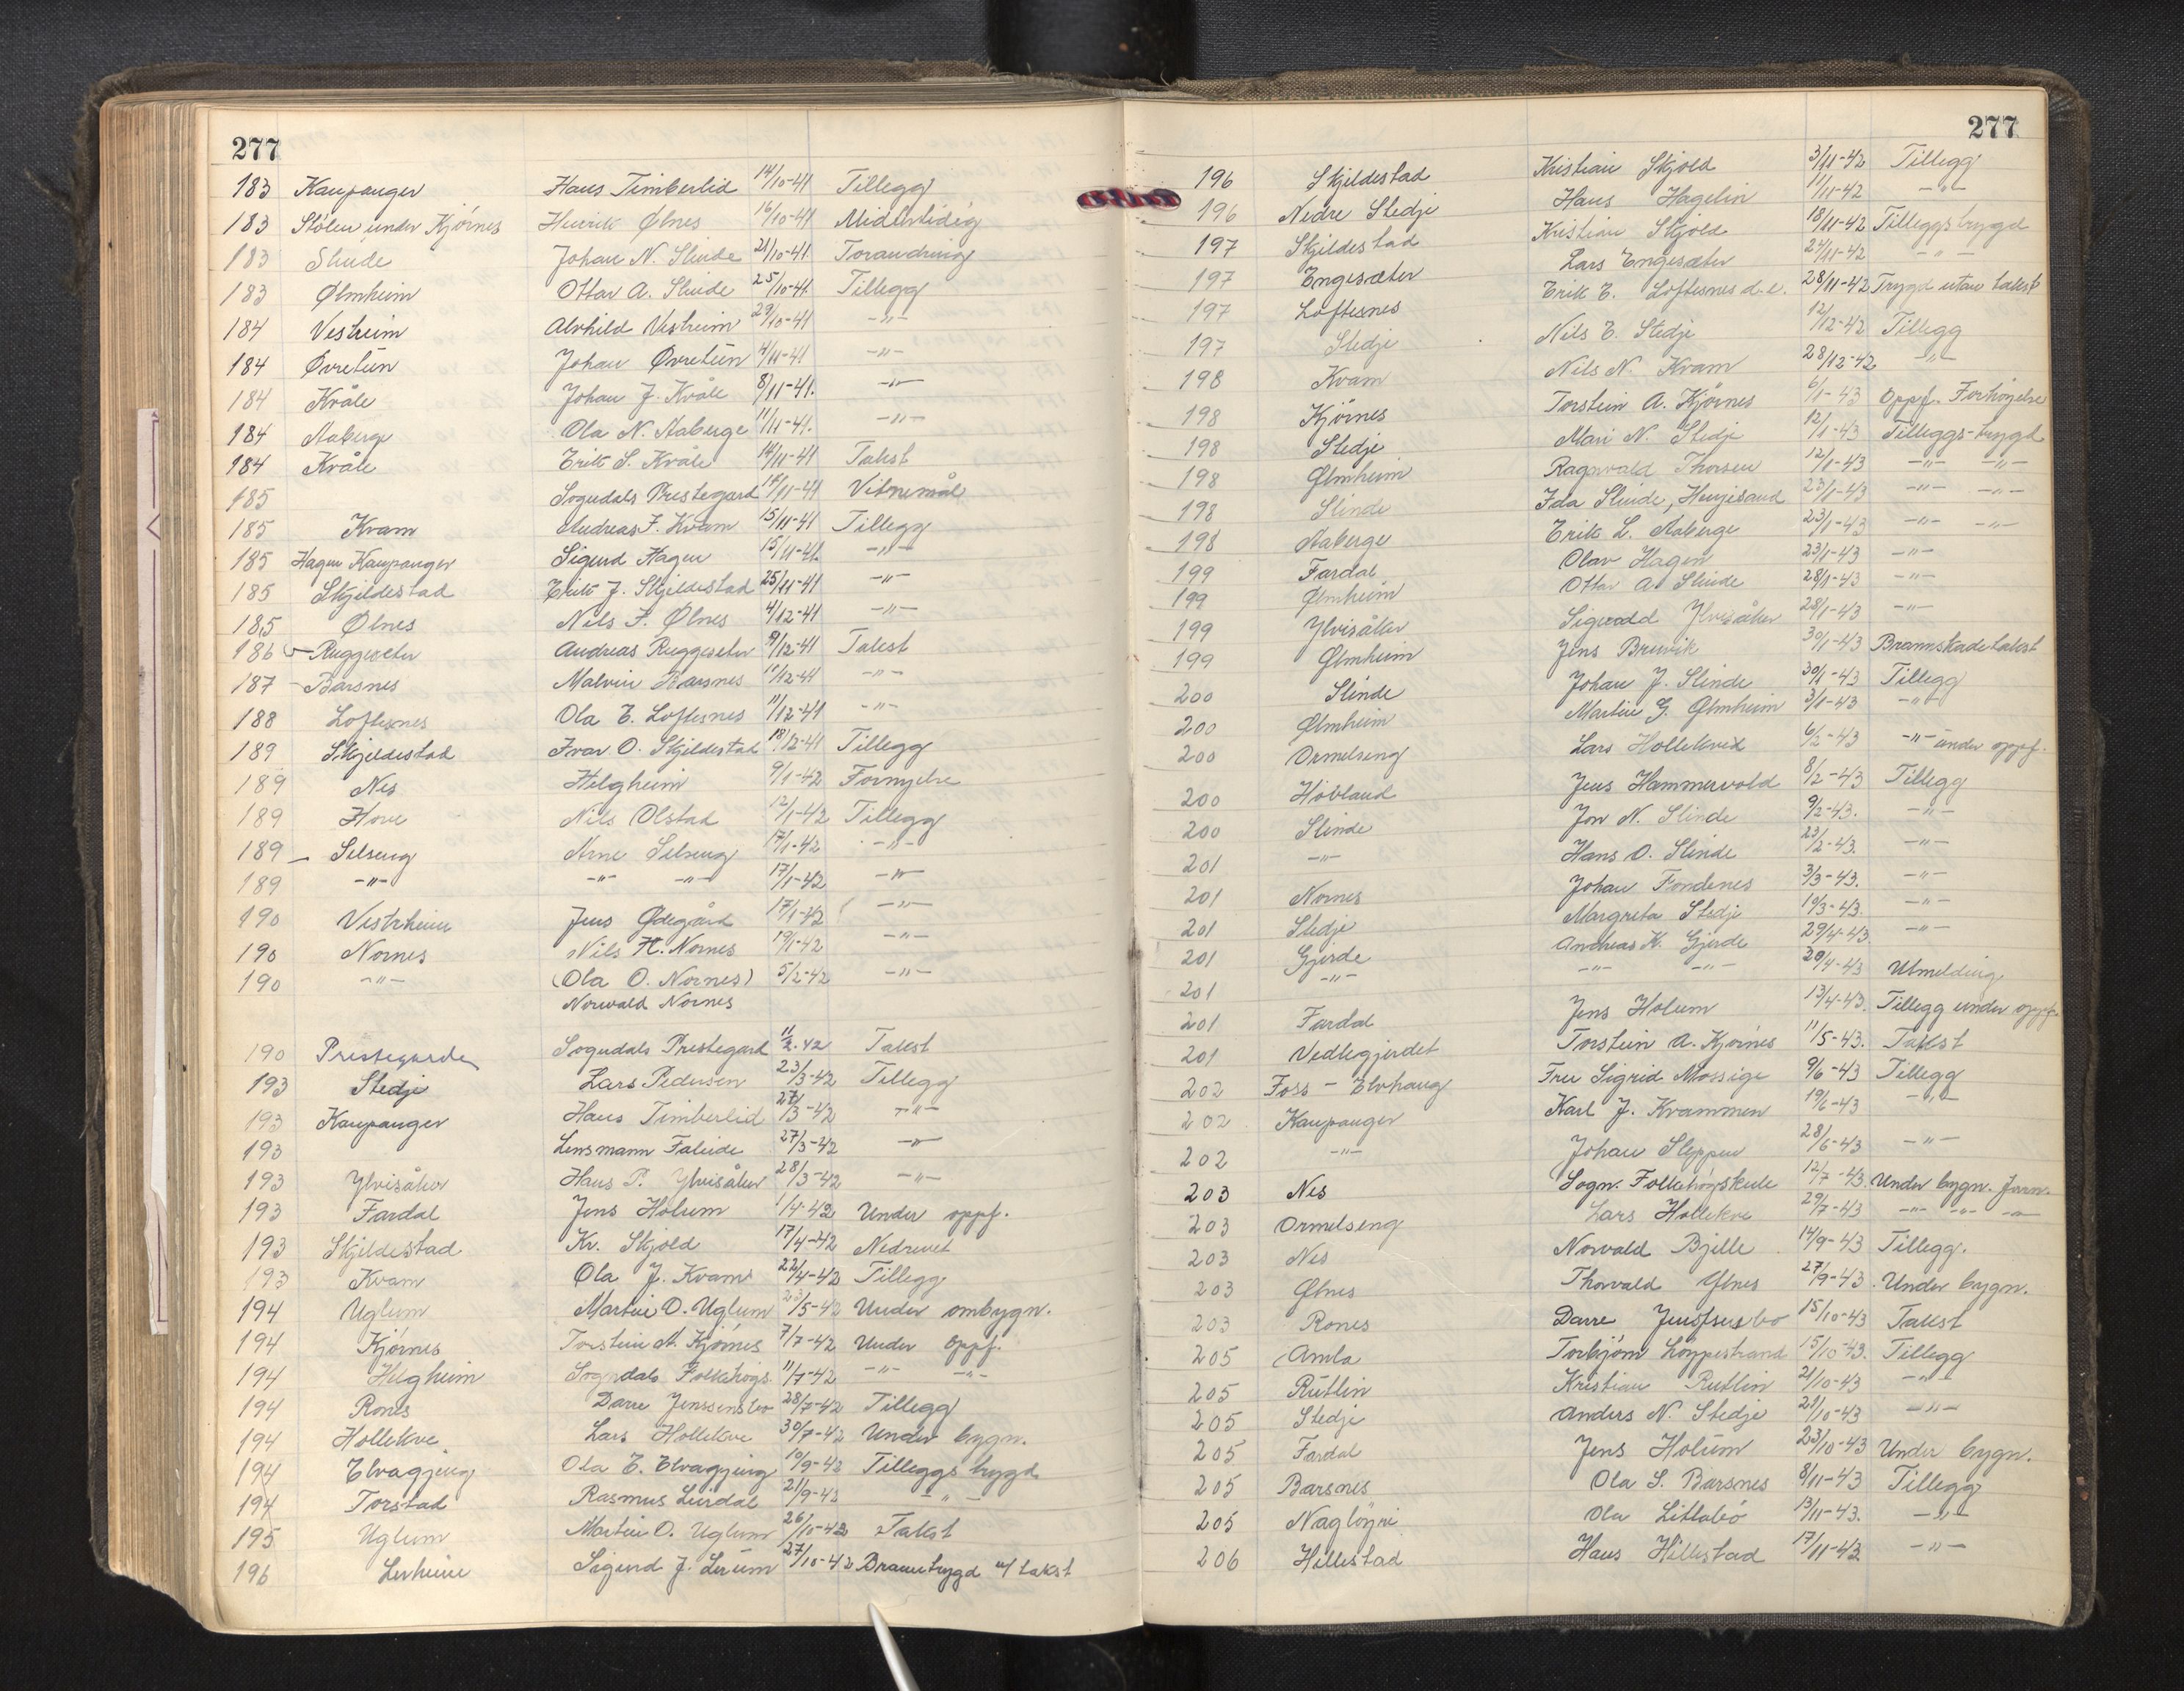 277
183 Kaupanger Hans Timberlid 14/10-41 Tillegg
183 Stölen under Kjörnes Henrik Ølnes 16/10-41 Midlertidig
183 Slinde Johan N. Slinde 21/10-41 Forandring
183 Ølmheim Ottar A. Slinde 25/10-41 Tillegg
184 Vestreim Alvhild Vestreim 29/10-41 -"-
184 Øvretun Johan Øvretun 4/11-41 -"-
184 Kvåle Johan J. Kvåle 8/11-41. -"-
184 Aaberge Ola N. Aaberge 11/11-41. -"-
184 Kvåle Erik S. Kvåle 14/11-41 Takst
185 Sogndals Prestegard 14/11-41 Vitnemål
185 Kvam Andreas F. Kvam 15/11-41 Tillegg
185 Hagen Kaupanger Sigurd Hagen 15/11-41. -"-
185 Skjildestad Erik J. Skjildestad 25/11-41 -"-
185 Ølnes Nils F. Ølnes 4/12-41 -"-
186 Ruggeseter Andreas Ruggeseter 9/12-41 Takst
187 Barsnes Malvin Barsnes 11/12-41 -"-
188 Loftesnes Ola E. Loftesnes 11/12-41 -"-
189 Skjeldestad Ivar O. Skjildestad 18/12-41 Tillegg
189 Nes Helgheim 9/1-42 Fornyelse
189 Hove Nils Olstad 12/1-42 Tillegg
189 Selseng Arne Selseng 17/1-42 -"-
189 -"- -"- -"- 17/1-42 -"-
190 Vestrheim Jens Ødegård 17/1-42 -"-
190 Nornes Nils H. Nornes 19/1-42 -"-
190 -"- (Ola O. Nornes) 5/2-42 -"-
Norvald Nornes
190 Prestegarden Sogndals Prestegard 11/2-42 Takst
193 Stedje Lars Pedersen 23/3-42 Tillegg
193 Kaupanger Hans Timberlid 27/3-42 -"-
193 Lensmann Faleide 27/3-42 -"-
193 Ylvisåker Hans P. Ylvisåker 28/3-42 -"-
193 Fardal Jens Holum 1/4-42 Under oppf.
193 Skjildestad Kr. Skjold 17/4-42 Nedrevet
193 Kvam Ola J. Kvam 22/4-42 Tillegg
194 Uglum Martin O. Uglum 23/5-42 Under ombygn.
194 Kjörnes Torstein A. Kjörnes 7/7-42 Under oppf.
194 Helgheim Sogndals Folkehögs. 11/7-42 -"- -"-
194 Rones Darre Jenssensbo 28/7-42 Tillegg
194 Hollekve Lars Hollekve 30/7-42 Under bygn.
194 Elvagjeng Ola E. Elvagjeng 10/9-42 Tilleggs trygd
194 Torstad Rasmus Leirdal 21/9-42 -"-
195 Uglum Martin O. Uglum 26/10-42 Takst
196 Lerheim Sigurd J. Lerum 27/10-42 Branntrygd u/ takst
277
196 Skjildestad Kristian Skjold 3/11-42 Tillegg
196 Nedre Stedje Hans Hagelin 11/11-42 -"-
197 Skjildestad Kristian Skjold 18/11-42 Tilleggstrygd
197 Engeseter Lars Engeseter 24/11-42 -"-
197 Loftesnes Erik E. Loftesnes d.e. 28/11-42 Trygd utan takst
197 Stedje Nils E. Stedje 12/12-42 Tillegg
198 Kvam Nils N. Kvam 28/12-42 -"-
198 Kjörnes Torstein A. Kjörnes 6/1-43 Oppf. Forhöyelse
198 Stedje Mari N. Stedje 12/1-43 Tilleggs-trygd
198 Ølmheim Ragnvald Thorsen 12/1-43 -"- -"-
198 Slinde Ida Slinde, Henjesand 23/1-43 -"- -"-
198 Aaberge Erik L. Aaberge 23/1-43 -"- -"-
199 Fardal Olav Hagen 23/1-43 -"-
199 Ølmheim Ottar A. Slinde 28/1-43 -"-
199 Ylvisåker Sigvald Ylvisåker 28/1-43 -"-
199 Ølmheim Jens Bruvik 30/1-43 Brannskadetakst
200 Slinde Johan J. Slinde 30/1-43 Tillegg
200 Ølmheim Martin G. Ølmheim 3/1-43 -"-
200 Ormelseng Lars Hollekve 6/2-43 -"- under oppf.
200 Hövland Jens Hammervold 8/2-43 Tillegg
200 Slinde Jon N. Slinde 9/2-43. -"-
201 -"- Hans O. Slinde 23/2-43. -"-
201 Nornes Johan Fondenes 3/3-43. -"-
201 Stedje Margreta Stedje 10/3-43. -"-
201 Gjerde Andreas K. Gjerde 29/4-43. -"-
201 -"- -"- -"- 20/4-43 Utmelding
201 Fardal Jens Holum 13/4-43. Tillegg under oppf.
201 Vedlegjerdet Torstein A. Kjörnes 11/5-43. Takst
202 Foss - Elvhaug Fru Sigrid Mossige 9/6-43 Tillegg
202 Kaupanger Karl J. Kvammen 19/6-43 -"-
202 -"- Johan Sleppen 28/6-43 -"-
203 Nes Sogn. Folkehögskule 12/7-43. Under bygn.
203 Ormelseng Lars Hollekve 29/7-43 -"- -"- -"-
203 Nes Norvald Bjelle 14/9-43 Tillegg.
203 Ølnes Thorvald Ølnes 27/9-43. Under bygn.
203 Rones Darre 15/10-43 Takst
205 Amla Torbjörn Loppestrand 15/10-43. Tillegg
205 Rutlin Kristian Rutlin 21/10-43 -"-
205 Stedje Anders N. Stedje 21/10-43 -"-
205 Fardal Jens Holum 23/10-43 Under bygn.
205 Barsnes Ola S. Barsnes 8/11-43 Tillegg
205 Naglöyri Ola Litlabö 13/11-43. -"-
206 Hillestad Hans Hillestad 17/11-43 -"-